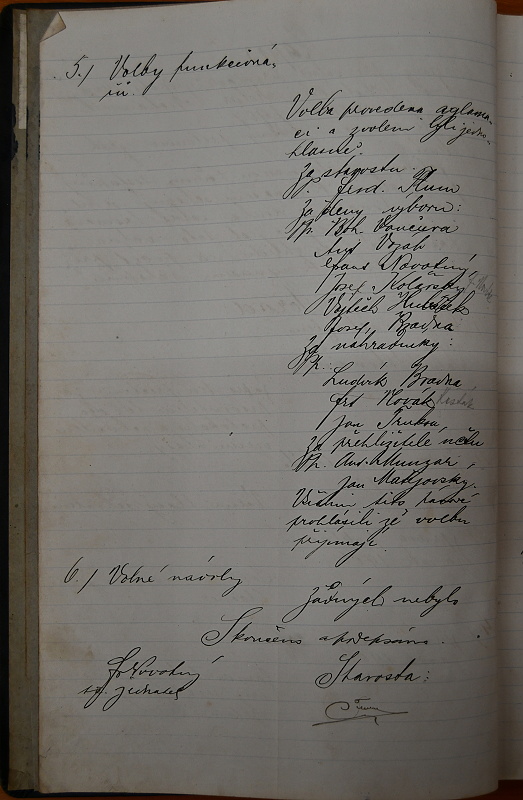 5.) Volby funkcioná-
řů.
Volba provedena aglama-
cí a zvoleni byli jedno-
hlasně:
Za starostu:
Ferd. Thum
Za členy výboru:
Pp. Boh. Vančura
Ant.
Frant. Novotný,
Josef Kolářský
Vojtěch
Josef Bradna
Za náhradníky:
Pp.:
Ludvík Bradna
Frt. Novák
Jan Trnka,
Za přehlížitele účtů
Pp. Ant. Munzar,
Jan Matějovský.
Všichni tito pánové
prohlásili že volbu
přijímají.
6.) Volné návrhy
Žádných nebylo
Skončeno a podepsáno.
Fr. Novotný
t. č. jednatel
Starosta: